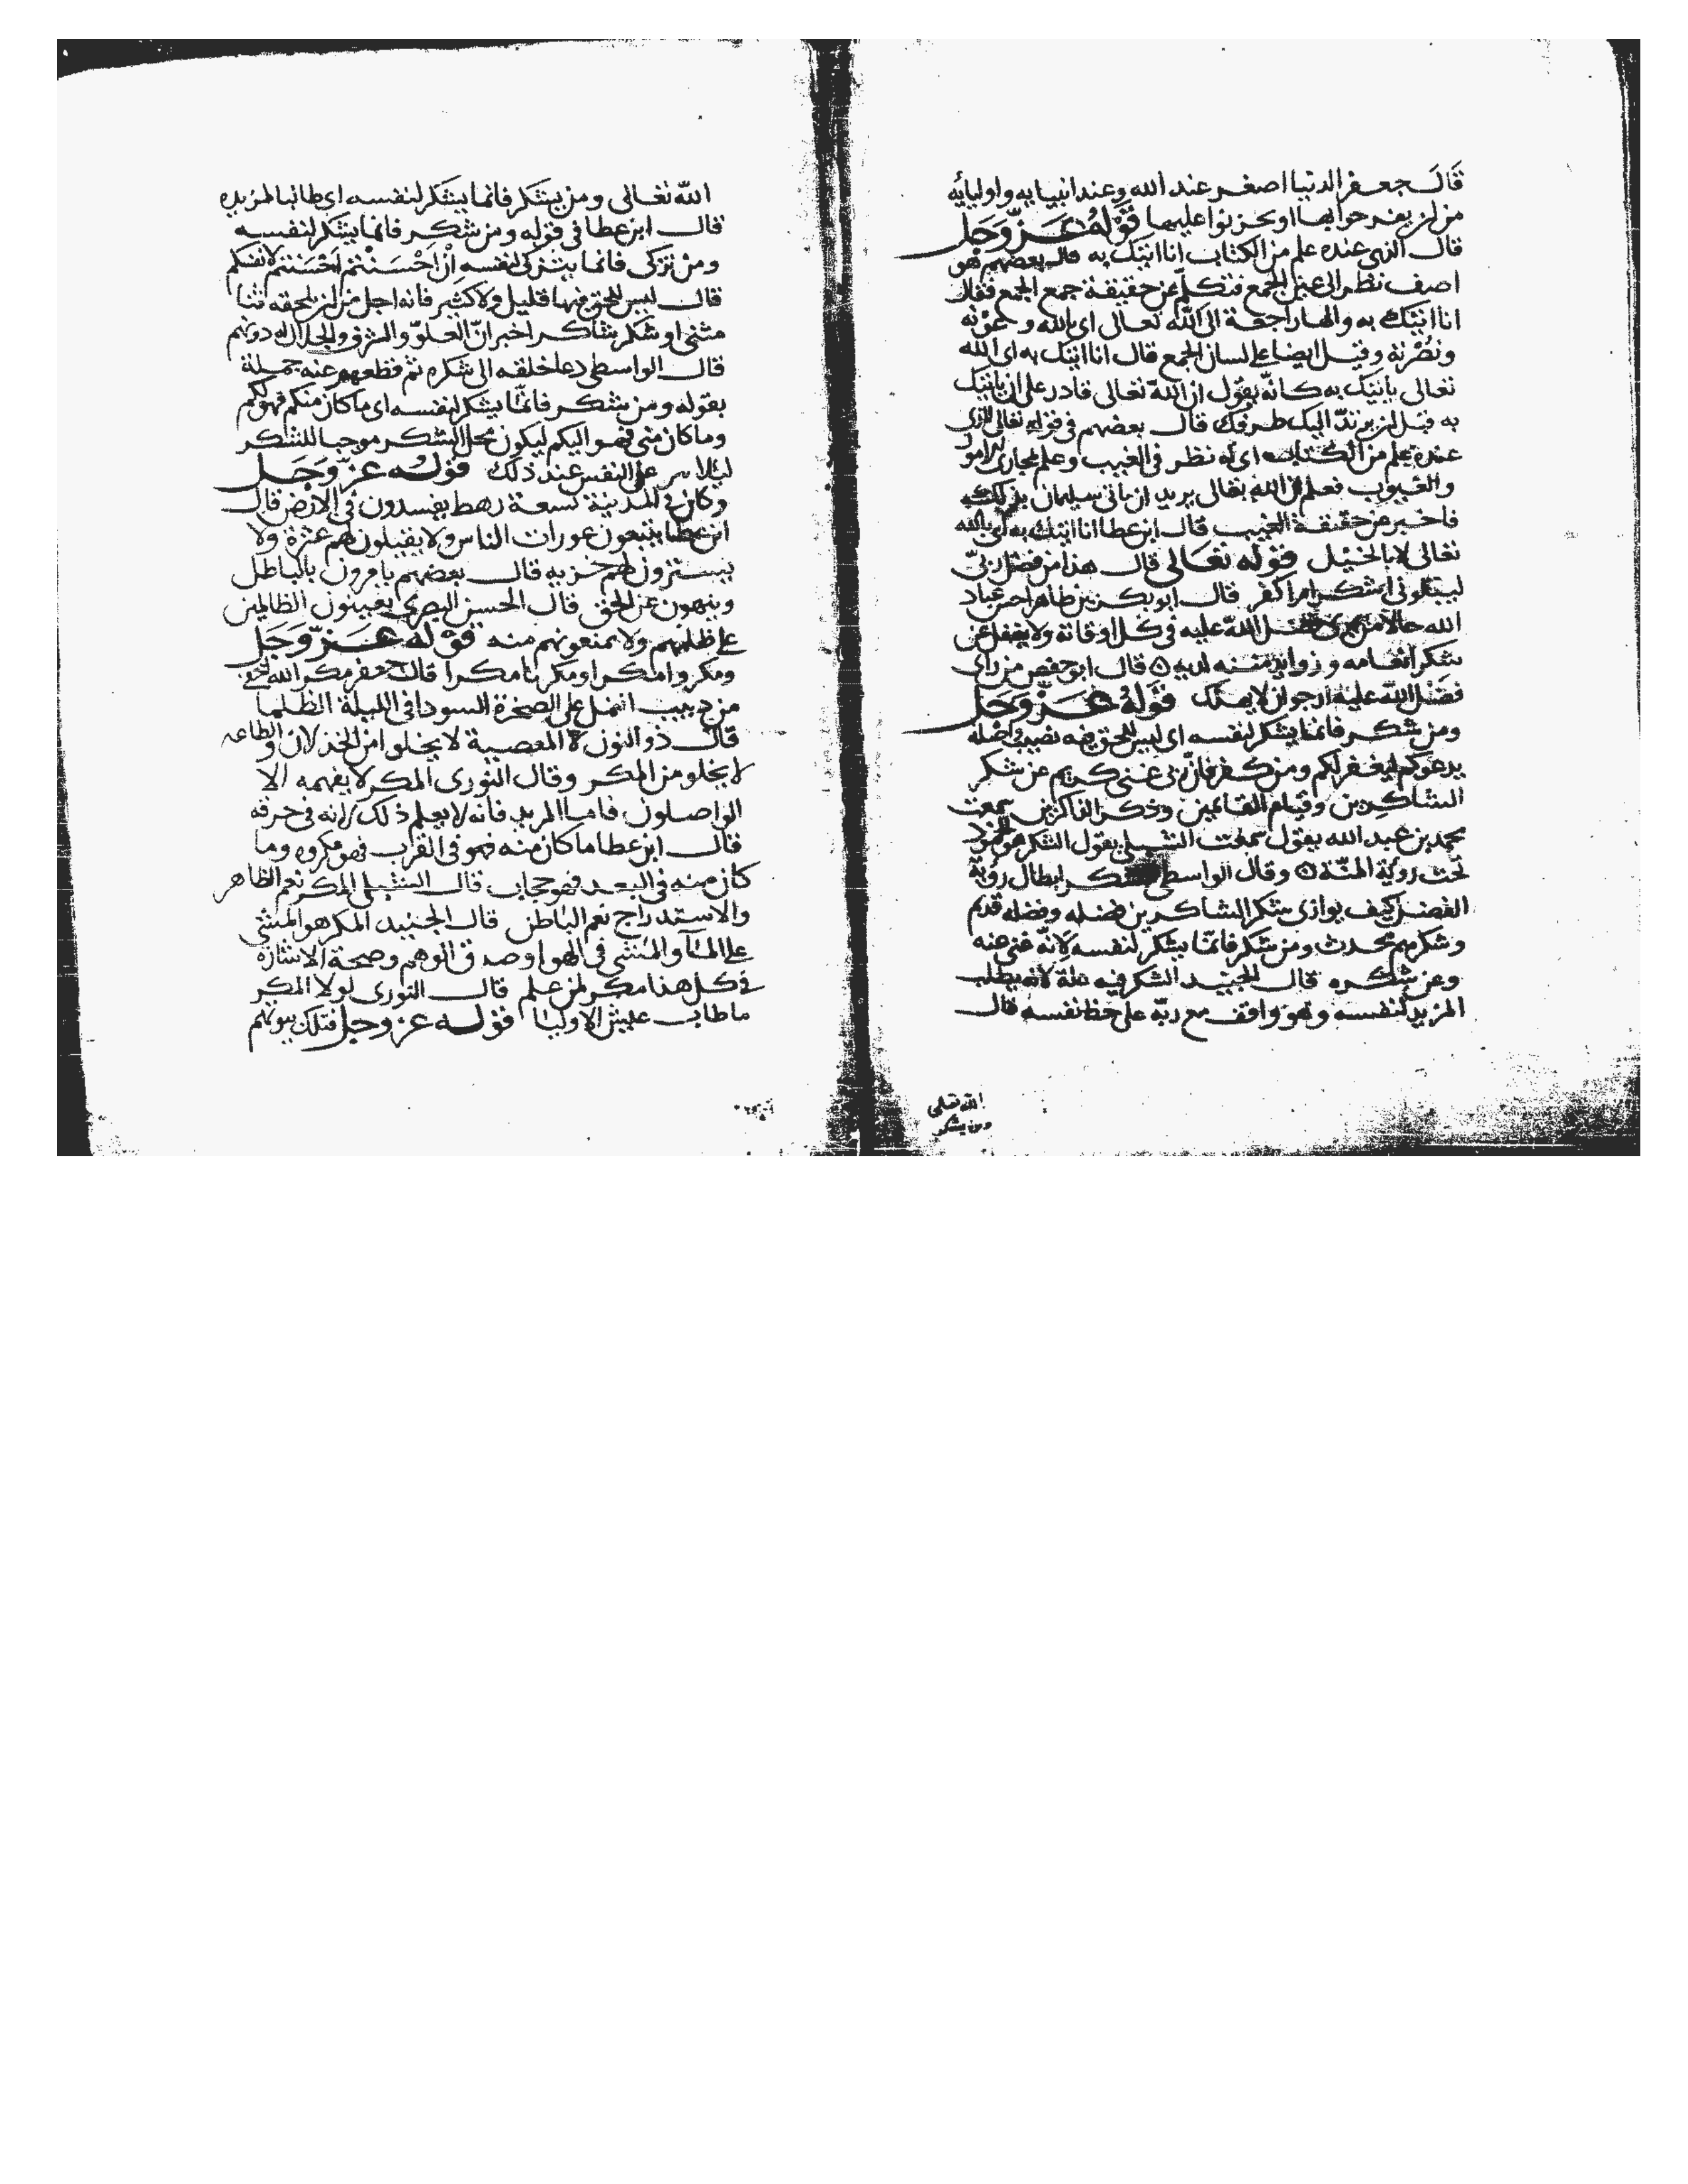 قَالَ جعفر الدنيا اصغر عند الله وعند انبيايه واوليايه
من ان يفرحوا بها او يحزنوا عليها قَوْلهُ عَزّ وَجَل
قال الذي عنده علم من الكتاب انا اتيك به قال بعضهم هو
اصف نظر الى عين الجمع فتكلّم عن حقيقة جمع الجمع فقال
انا اتيك به والها راجعة الى الله تعالى اي بالله وعونه
ونُصْرته وقيل ايضا على لسان الجمع قال انا اتيك به اي الله
تعالى ياتيك به كانّه يقول ان الله تعالى قادر على ان ياتيك
به قبل ان يرتدّ اليك طرفك قال بعضهم في قوله تعالى الذي
عنده علم من الكتاب اي له نظر في الغيب وعلم مجاري الامور
والغيوب فعلم ان الله تعالى يريد ان ياتي سليمان بذلك
فاخبر عن حقيقة الغيب قال ابن عطا انا اتيك به اي بالله
تعالى لا بالحيل قوله تعَالى قال هذا من فضل ربّي
ليبلوني ااشكر ام اكفر قال ابو بكر بن طاهر احسن عباد
الله حالا من يرى فضل الله عليه في كل اوقاته ولا يغفل عن
شكر انعامه وزوايد منه لديه ۞ قال ابو حفص من راى
فضل الله عليه ارجو ان لا يهلك قَوْلهُ عَزّ وَجَل
ومن شكر فانما يشكر لنفسه اي ليس للحق فيه نصيب
يدعوكم ليغفر لكم ومن كفر فان ربي غني كريم عن شكر
الشاكرين وقيام القايمين وذكر الذاكرين سمعت
محمد بن عبد الله يقول سمعت الشبلي يقول الشكر هو
تحت روية المنّة ۞ وقال الواسطي الشكر ابطال روية
الفضل كيف يوازى شكر الشاكرين فضله وفضله قديم
وشكرهم محدث ومن شكر فانّما يشكر لنفسه لانّه غني عنه
وعن شكره قال الجنيد الشكر فيه علة لانه يطلب
المزيد لنفسه وهو واقف مع ربّه على حظ نفسه قال
الله تعلى
ومن يشكر
الله تعالى ومن يشكر فانما يشكر لنفسه اي طالبا لمزيده
قال ابن عطا في قوله ومن شكر فانما يشكر لنفسه
ومن تزكى فانما يتزكى لنفسه اِنْ اَحْسَنْتُمْ اَحْسَنتم لانفسكم
قال ليس للحق فيها قليل ولا كثير فانه اجل من ان يلحقه ثنا
مثني او شكر شاكر اخبر انّ العلوّ والشرف والجلال له دونهم
قال الواسطي دعا خلقه الى شكره ثم قطعهم عنه جملة
بقوله ومن شكر فانّما يشكر لنفسه اي ما كان منكم فهو لكم
وما كان مني فهو اليكم ليكون محل الشكر موجبا للشكر
ليلا على النفس عند ذلك قوله عزّ وَجَل
وكان في المدينة تسعة رهط يفسدون في الارض قال
ابن عطا يتبعون عورات الناس ولا يقبلون لهم عثرة ولا
يسترون لهم خزيه قال بعضهم يامرون بالباطل
وينهون عن الحق قال الحسن البصري يعينون الظالمين
على ظلمهم ولا يمنعونهم منه قوْله عَزّ وَجَل
ومكروا مكرا ومكرنا مكرا قال جعفر مكر الله اخفى
من دبيب النمل على الصخرة السودا في الليلة الظلما
قال ذو النون لا المعصية لا يخلوا من الخذلان والطاعه
لا يخلو من المكر وقال النوري المكر لا يفهمه الا
الواصلون فاما المريد فانه لا يعلم ذلك لانه في حرفه
قال ابن عطا ما كان منه فهو في القراب فهو مكروه وما
كان منه في البعد فهو حجاب قال الشبلي المكر نعم الظاهر
والاستدراج نعم الباطن قال الجنيد المكر هو المشي
على المآ والمشي في الهوا وصدق الوهم وصحة الاشارة
في كل هذا مكر لمن علم قال النوري لولا المكر
ما طاب عيش الاوليا قوله عز وجل فتلك بيوتهم